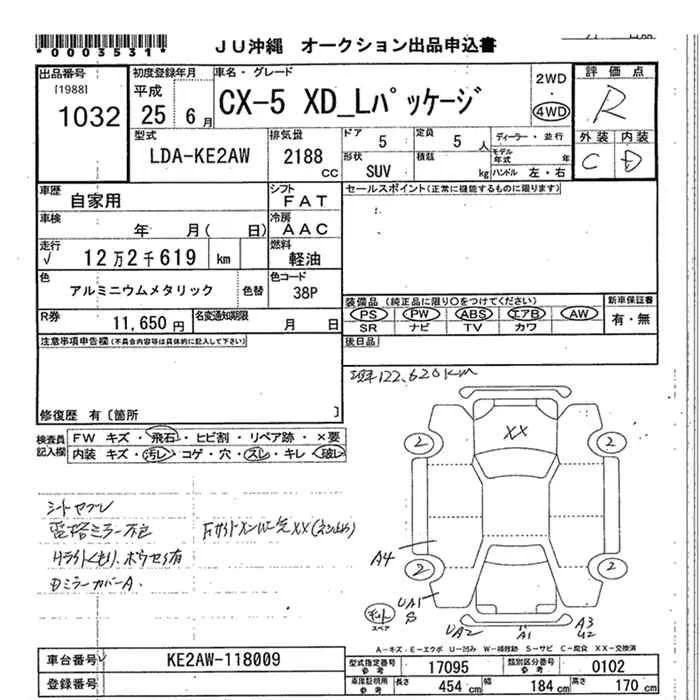 *0003531*
JU沖縄 オークション出品申込書
出品番号
[1988]
1032
初度登録年月
平成
25 6月
車名・グレード
CX-5 XD_Lパッケージ
2WD
4WD
評価点
R
外装 内装
C D
型式
LDA-KE2AW
排気量
2188
CC
ドア 5
定員 5 人
ディーラー・並行
形状 SUV
積載 kg
モデル年式 年
ハンドル 左・右
車歴
自家用
シフト
FAT
セールスポイント(正常に機能するものに限ります)
車検
年 月( 日)
冷房
AAC
走行
√ 12万2千619 km
燃料
軽油
色
アルミニウムメタリック
色替
色コード
38P
装備品 (純正品に限り○をつけてください)
新車保証書
PS PW ABS エアB AW
有・無
SR ナビ TV カワ
R券
11,650円
名変通知期限
月 日
後日品
注意事項申告欄(不具合内容等は具体的に記入して下さい)
現車122,620km
修復歴 有〔箇所 〕
検査員
記入欄
FW キズ・飛石・ヒビ割・リペア跡・×要
内装 キズ・汚レ・コゲ・穴・スレ・キレ・破レ
XX
2 2
2 2
A4
UA1
S
UA2
A1
A3
U2
スペア
A-キズ、E-エクボ U-凹み W-補修跡 S-サビ C-腐食 XX-交換済
車台番号
KE2AW-118009
登録番号
型式指定番号
参考
17095
類別区分番号
参考
0102
車庫証明用
参考
長さ 454 cm 幅 184 cm 高さ 170 cm